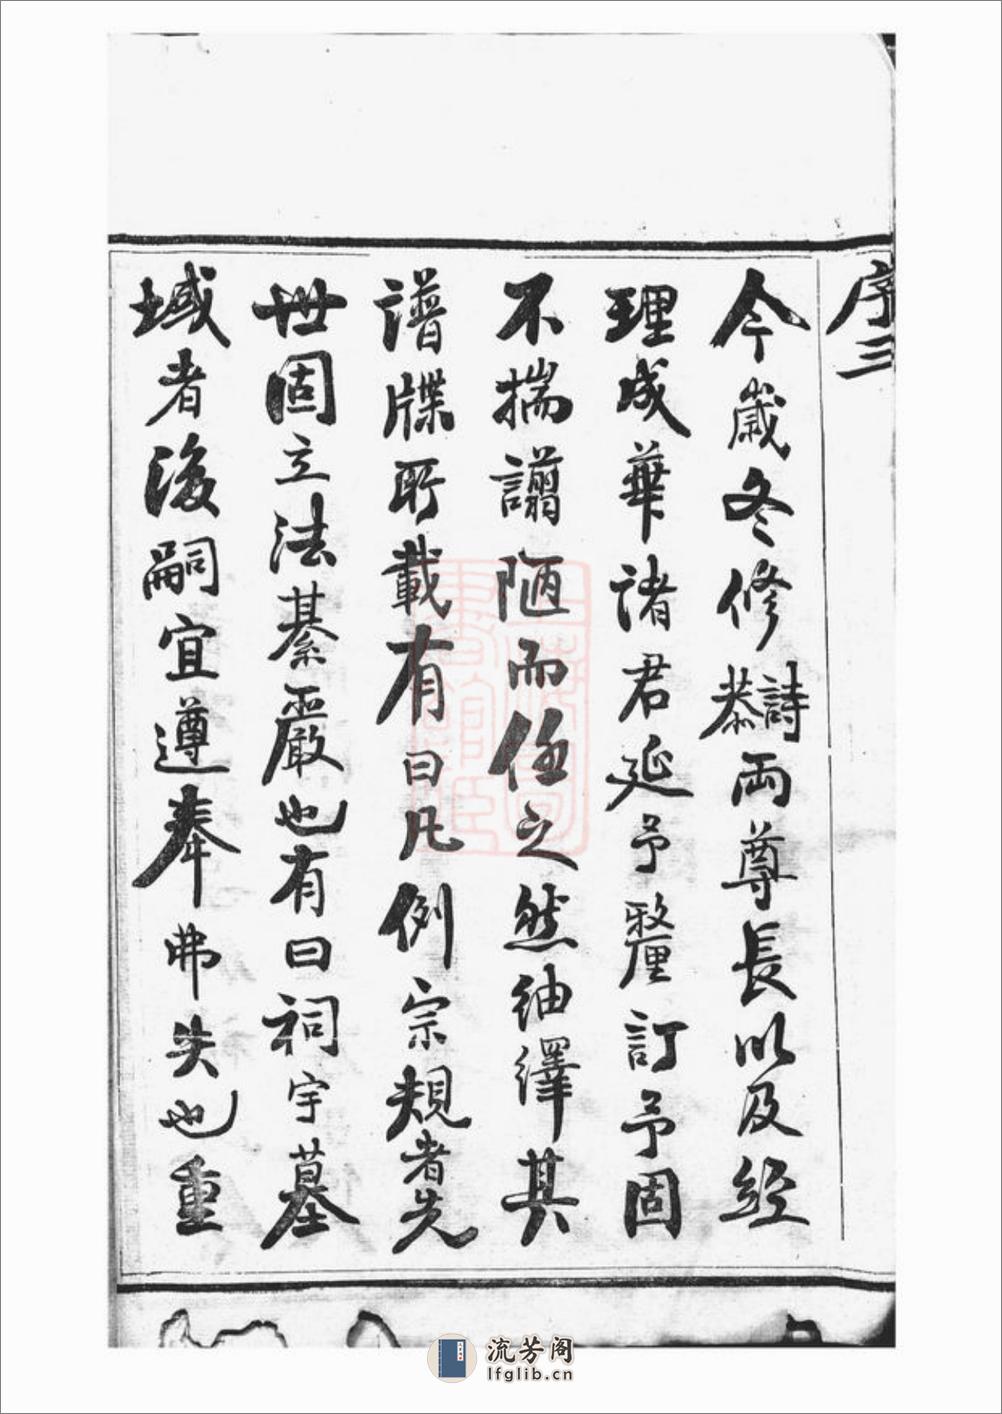 序三
今歲冬修詩恭兩尊長以及經
理成華諸君延予釐訂予固
不揣譾陋而任之然紬繹其
譜牒所載有曰凡例宗規者先
世固立法綦嚴也有曰祠宇墓
域者後嗣宜遵奉弗失也重
流芳阁
lfglib.cn